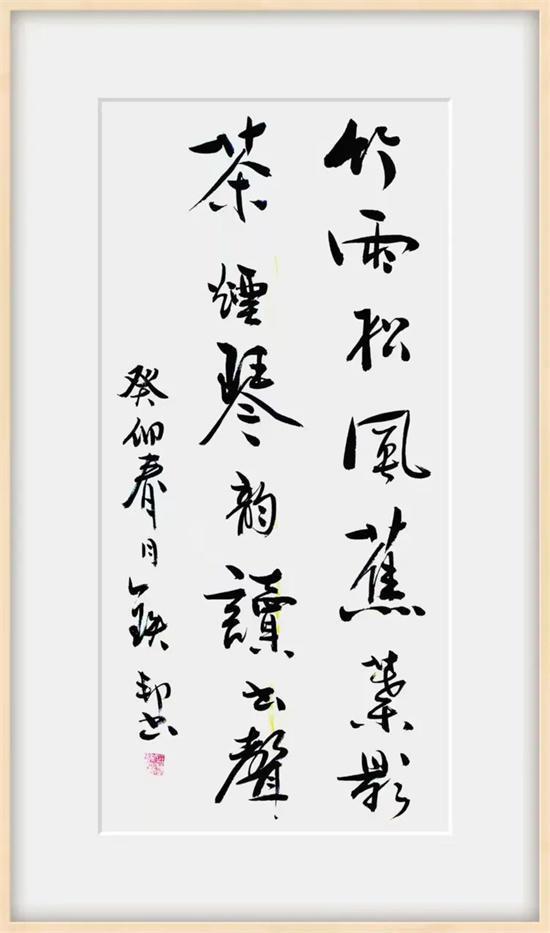 竹雨松風蕉葉影
茶煙琴韵讀书聲
癸卯春月